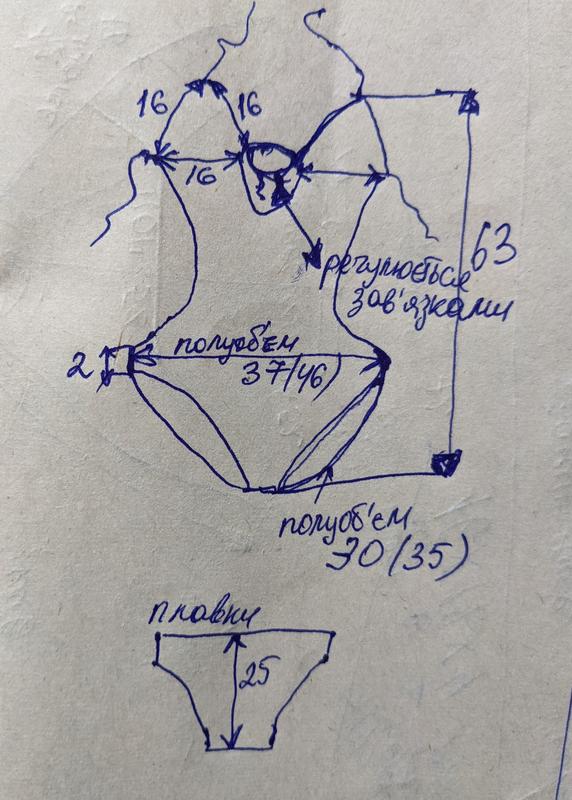 16
16
16
63
регулюється
зав'язками
полуоб'єм
2
37(46)
полуоб'єм
30(35)
плавки
25